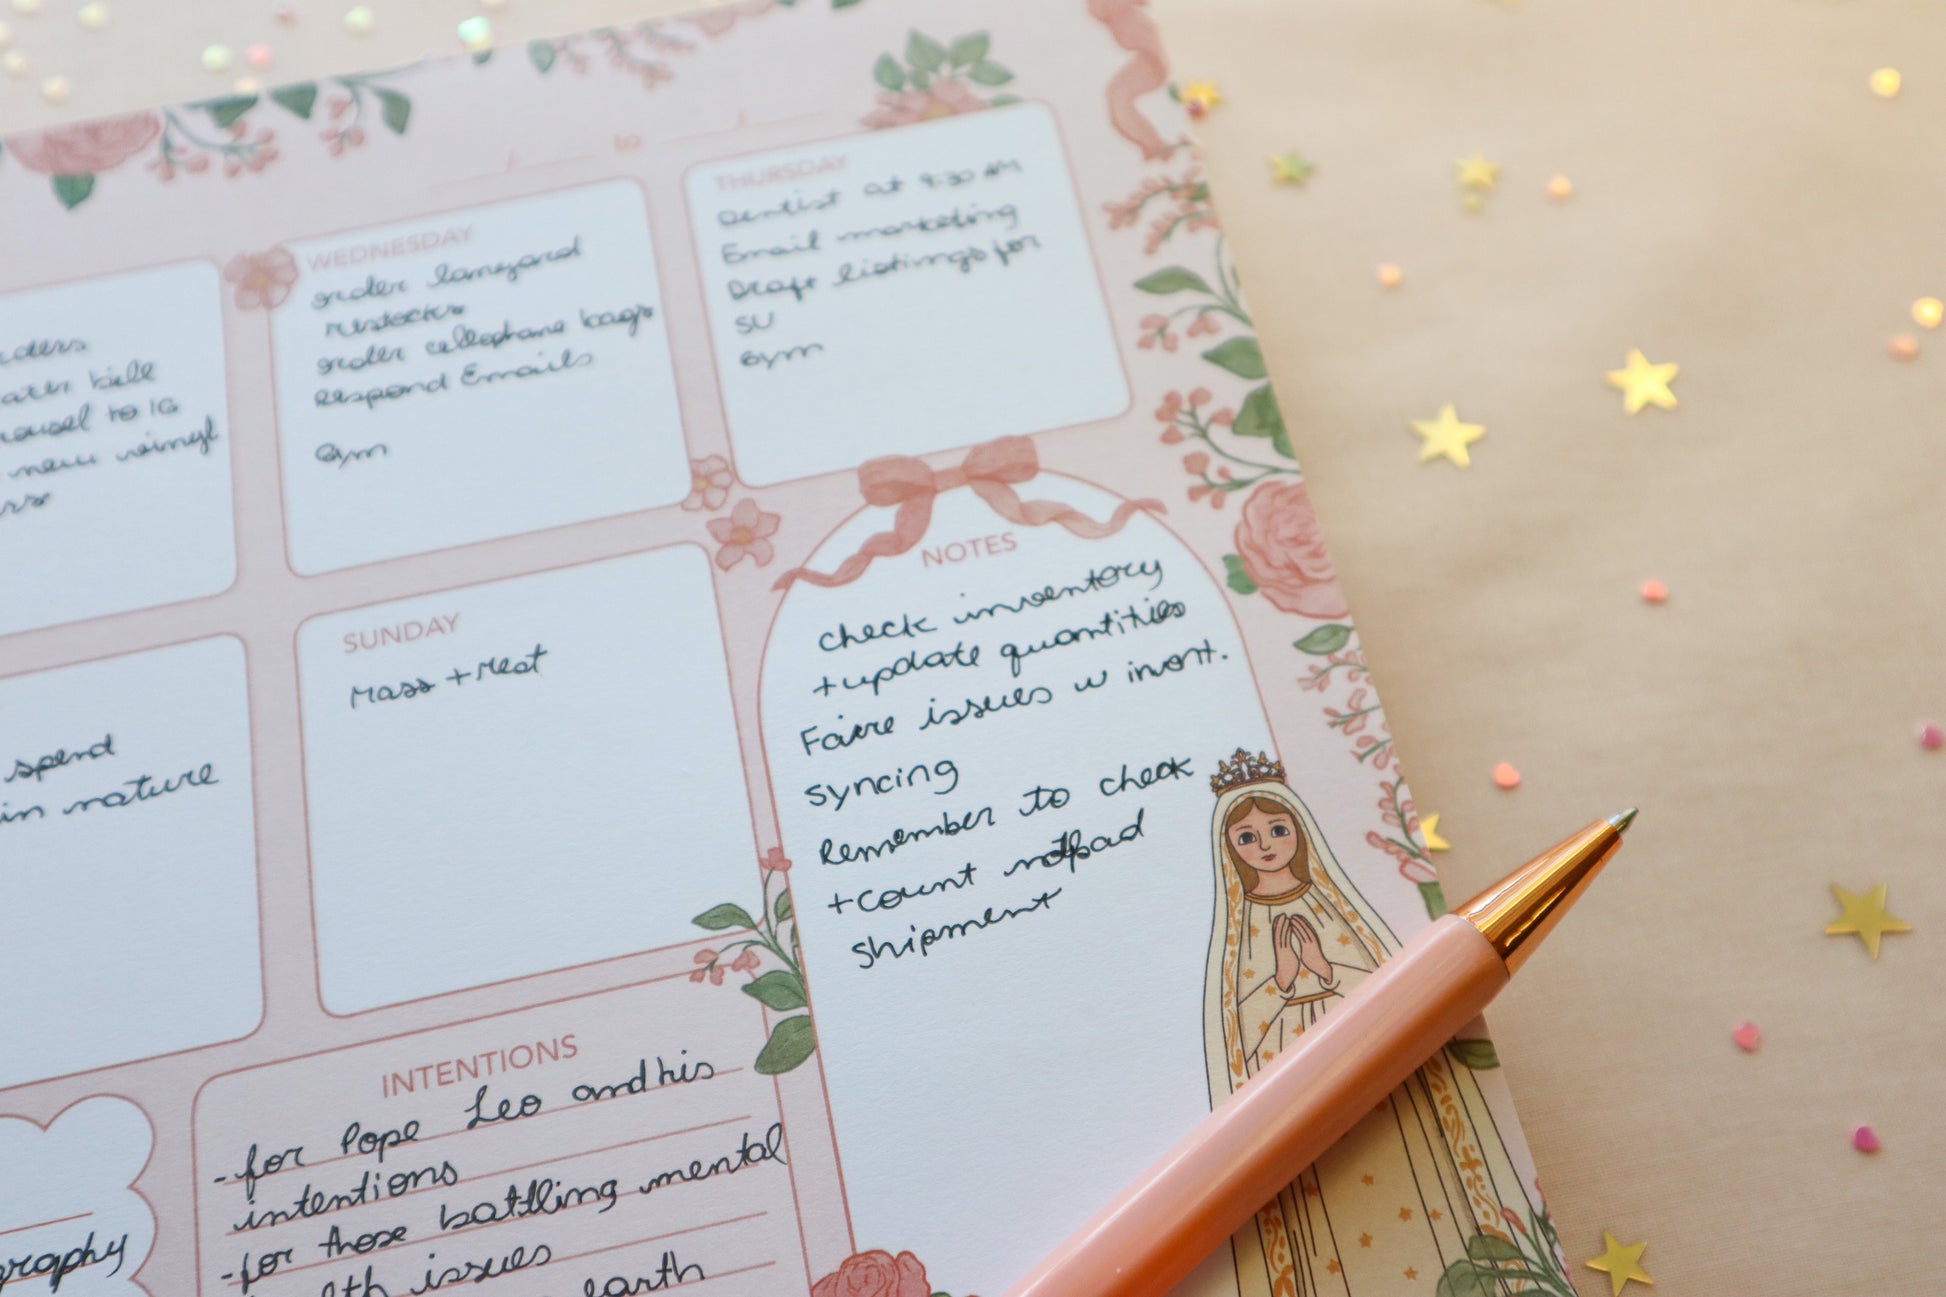 to
THURSDAY
Dentist at 9:30 AM
Email marketing
Draft listings for
SU
Gym
WEDNESDAY
order lanyard
restocks
order cellophane bags
respond Emails
Gym
orders
water bill
carousel to IG
new vinyl
NOTES
check inventory
+ update quantities
Faire issues w invent.
syncing
Remember to check
+ count notpad
shipment
SUNDAY
Mass + rest
spend
in nature
INTENTIONS
- for Pope Leo and his
intentions
- for those battling mental
health issues
earth